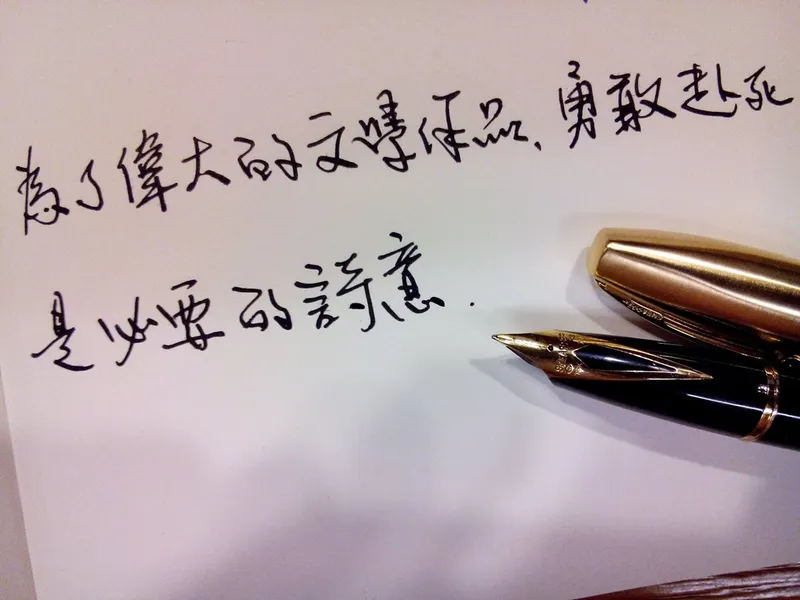 為了偉大的文學作品、勇敢赴死
是必要的詩意.